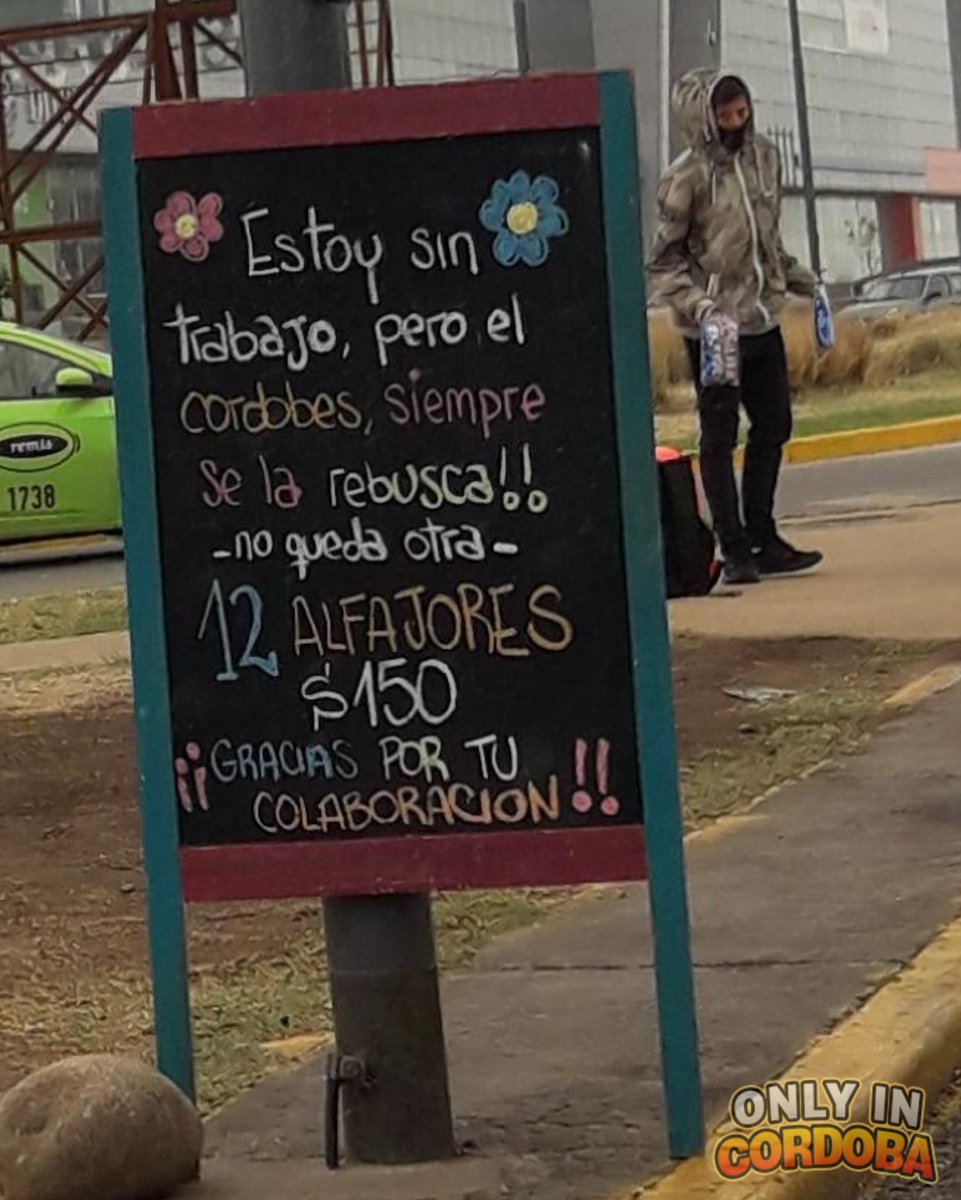 Estoy sin
trabajo, pero el
cordobes, siempre
se la rebusca!!
-no queda otra-
12 ALFAJORES
$150
¡¡GRACIAS POR TU
COLABORACION!!
remis
1738
ONLY IN
CORDOBA